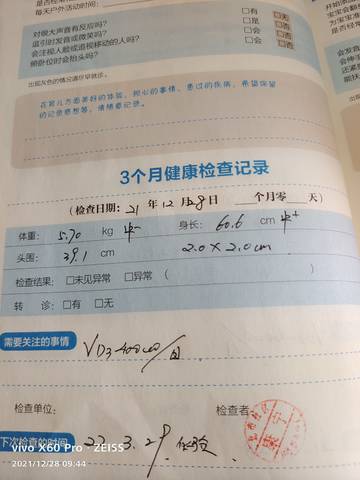 每天户外活动时间:
□有 □无
对很大声音有反应吗? □足 □否
逗引时发音或微笑吗? □会 □否
会注视人脸或追视移动的人吗? □会 □否
俯卧位时会抬头吗?
出现灰色的情况请尽早就诊。
在育儿方面美好的体验、担心的事情、患过的疾病,希望保留的记录感想等,请随意记录。
3个月健康检查记录
(检查日期: 21 年 12 月 28 日 个月零 天)
体重: 5.70 kg 中- 身长: 60.6 cm 中+
头围: 39.1 cm 2.0 x 2.0 cm
检查结果: □未见异常 □异常 ( )
转 诊: □有 □无
需要关注的事情
VD3 400 /日
检查单位: 检查者:
下次检查的时间 22. 3. 29 体验
vivo X60 Pro · ZEISS
2021/12/28 09:44